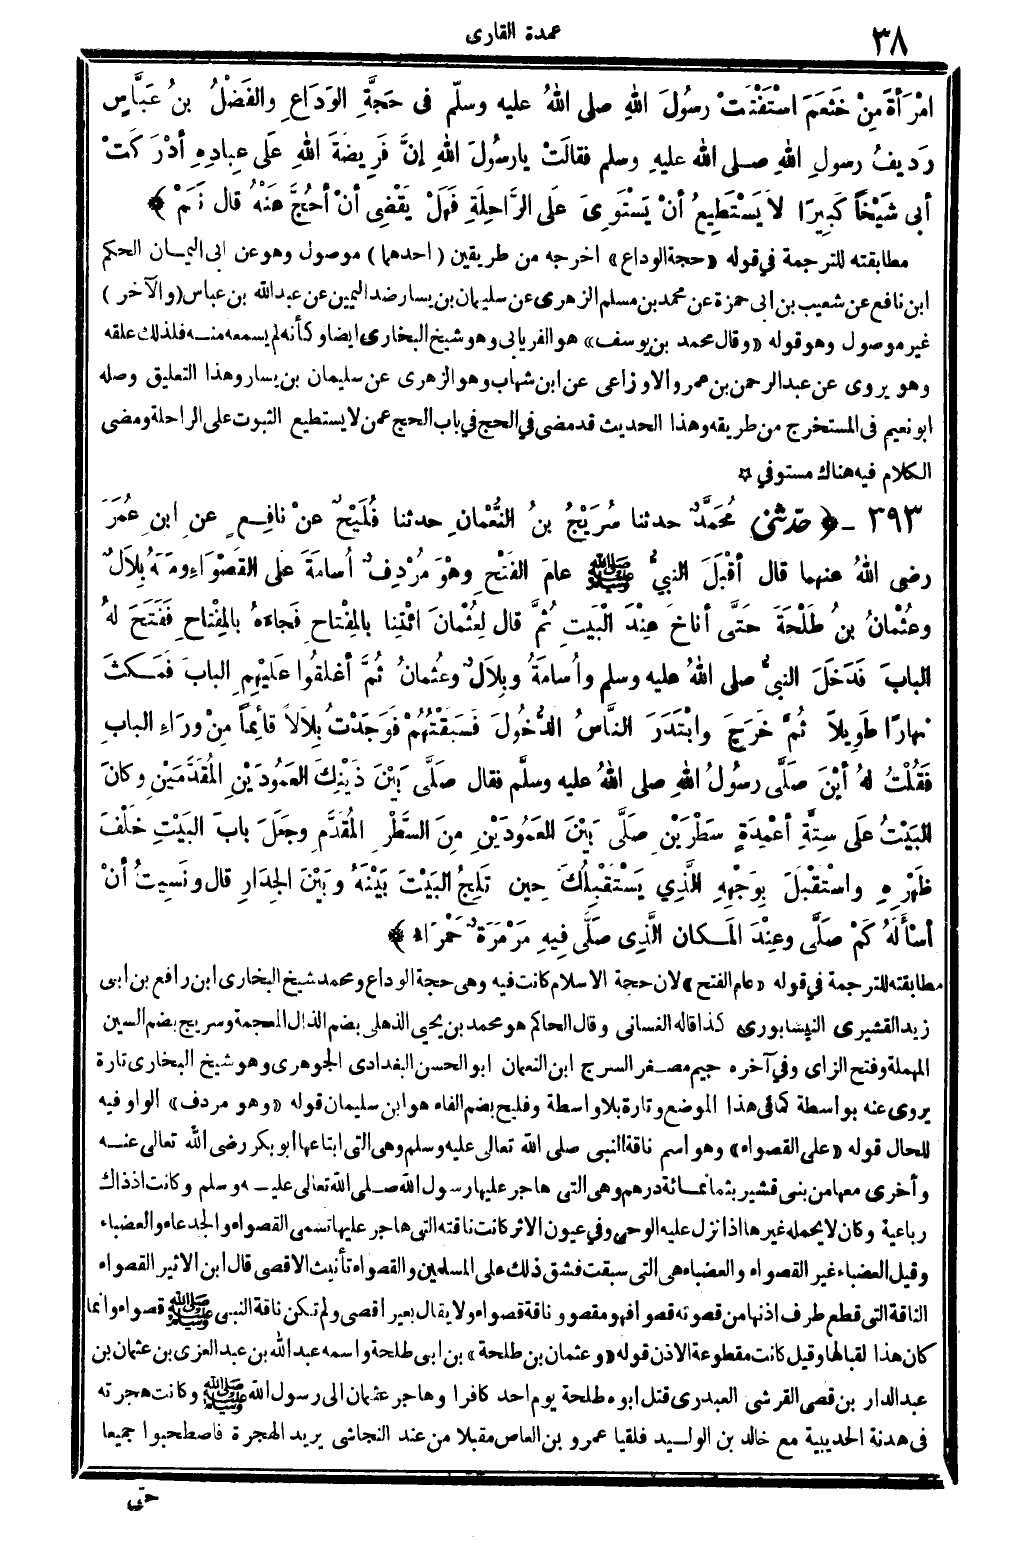 ٣٨
عمدة القارى
امْرَأَةً مِنْ خَثْعَمَ اسْتَفْتَتْ رسُولَ اللهِ صلى اللهُ عليه وسلّم فى حَجَّةِ الوَدَاعِ والفَضْلُ بنُ عَبَّاسٍ
رَدِيفُ رسولِ اللهِ صلى الله عليهِ وسلم فقالَتْ يارسُولَ اللهِ إنَّ فَرِيضَةَ اللهِ عَلَى عِبادِهِ أدْرَكَتْ
أبى شَيْخًا كَبِيرًا لاَيَسْتَطِيعُ أنْ يَسْتَوِىَ عَلَى الرَّاحِلَةِ فَهَلْ يَقْضِى أنْ أحُجَّ عَنْهُ قال نَعَمْ ﴾
مطابقته للترجمة فى قوله «حجة الوداع» اخرجه من طريقين (احدهما) موصول وهو عن ابى اليمان الحكم
ابن نافع عن شعيب بن ابى حمزة عن محمد بن مسلم الزهرى عن سليمان بن يسار ضد اليمين عن عبدالله بن عباس (والآخر)
غير موصول وهو قوله «وقال محمد بن يوسف» هو الفريابى وهو شيخ البخارى ايضا وكأنه لم يسمعه منه فلذلك علقه
وهو يروى عن عبدالرحمن بن عمرو الاوزاعى عن ابن شهاب وهو الزهرى عن سليمان بن يسار وهذا التعليق وصله
ابو نعيم فى المستخرج من طريقه وهذا الحديث قد مضى فى الحج فى باب الحج عمن لا يستطيع الثبوت على الراحلة ومضى
الكلام فيه هناك مستوفي ☆
٣٩٣ ـ ﴿ حدّثنى مُحَمَّدٌ حدثنا سُرَيْجُ بنُ النُّعْمانِ حدثنا فُلَيْحٌ عنْ نافِعٍ عنِ ابنِ عُمَرَ
رضى اللهُ عنهما قال أقْبَلَ النبيُّ ﷺ عامَ الفَتْحِ وهْوَ مُرْدِفٌ أُسامَةَ عَلَى القَصْوَاءِ ومَعَهُ بِلاَلٌ
وعُثْمانُ بنُ طَلْحَةَ حَتَّى أناخَ عِنْدَ الْبَيْتِ ثُمَّ قال لِعُثْمانَ ائْتِنا بالمِفْتاحِ فَجاءَهُ بالمِفْتاحِ فَفَتَحَ لهُ
البابَ فَدَخَلَ النبىُّ صلى اللهُ عليه وسلم وأُسامَةُ وبِلاَلٌ وعُثمانُ ثُمَّ أغلَقُوا عَلَيْهِمِ البابَ فَمَكَثَ
نَهارًا طَوِيلاً ثُمَّ خَرَجَ وابْتَدَرَ النَّاسُ الدُّخُولَ فَسَبَقْتُهُمْ فَوَجَدْتُ بِلاَلاً قائِمًا مِنْ وراءِ البابِ
فَقُلْتُ لهُ أيْنَ صَلَّى رسُولُ اللهِ صلى اللهُ عليه وسلَّم فقال صَلَّى بَيْنَ ذَيْنِكَ العَمُودَيْنِ المُقَدَّمَيْنِ وكانَ
البَيْتُ عَلَى سِتَّةِ أعْمِدَةٍ سَطْرَيْنِ صَلَّى بَيْنَ العَمُودَيْنِ مِنَ السَّطْرِ المُقَدَّمِ وجَعَلَ بابَ البَيْتِ خَلْفَ
ظَهْرِهِ واسْتَقْبَلَ بِوَجْهِهِ الَّذِي يَسْتَقْبِلُكَ حِينَ تَلِجُ البَيْتَ بَيْنَهُ وبَيْنَ الجِدَارِ قال ونَسِيتُ أنْ
أسْأَلَهُ كَمْ صَلَّى وعِنْدَ المَكانِ الَّذِى صَلَّى فِيهِ مَرْمَرَةٌ حَمْرَاءُ ﴾
مطابقته للترجمة فى قوله «عام الفتح» لان حجة الاسلام كانت فيه وهى حجة الوداع ومحمد شيخ البخارى ابن رافع بن ابى
زيد القشيرى النيسابورى كذا قاله الغسانى وقال الحاكم هو محمد بن يحيى الذهلى بضم الذال المعجمة وسريج بضم السين
المهملة وفتح الزاى وفى آخره جيم مصغر السرج ابن النعمان ابو الحسن البغدادى الجوهرى وهو شيخ البخارى تارة
يروى عنه بواسطة كما فى هذا الموضع وتارة بلا واسطة وفليح بضم الفاء هو ابن سليمان قوله «وهو مردف» الواو فيه
للحال قوله «على القصواء» وهو اسم ناقة النبى صلى الله تعالى عليه وسلم وهى التى ابتاعها ابو بكر رضى الله تعالى عنه
وأخرى معها من بنى قشير بثمانمائة درهم وهى التى هاجر عليها رسول الله صلى الله تعالى عليه وسلم وكانت اذذاك
رباعية وكان لا يحمله غيرها اذا نزل عليه الوحى وفى عيون الاثر كانت ناقته التى هاجر عليها تسمى القصواء والجدعاء والعضباء
وقيل العضباء غير القصواء والعضباء هى التى سبقت فشق ذلك على المسلمين والقصواء تأنيث الاقصى قال ابن الاثير القصواء
الناقة التى قطع طرف اذنها من قصوته قصوا فهو مقصو وناقة قصواء ولا يقال بعير اقصى ولم تكن ناقة النبى ﷺ قصواء وانما
كان هذا لقبا لها وقيل كانت مقطوعة الاذن قوله «وعثمان بن طلحة» بن ابى طلحة واسمه عبد الله بن عبد العزى بن عثمان بن
عبدالدار بن قصى القرشى العبدرى قتل ابوه طلحة يوم احد كافرا وهاجر عثمان الى رسول الله ﷺ وكانت هجرته
فى هدنة الحديبية مع خالد بن الوليد فلقيا عمرو بن العاص مقبلا من عند النجاشى يريد الهجرة فاصطحبوا جميعا
حتى